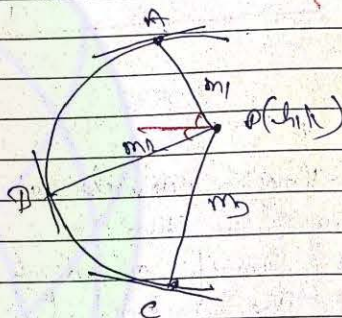 A
m1
P(h,k)
m2
B
m3
C